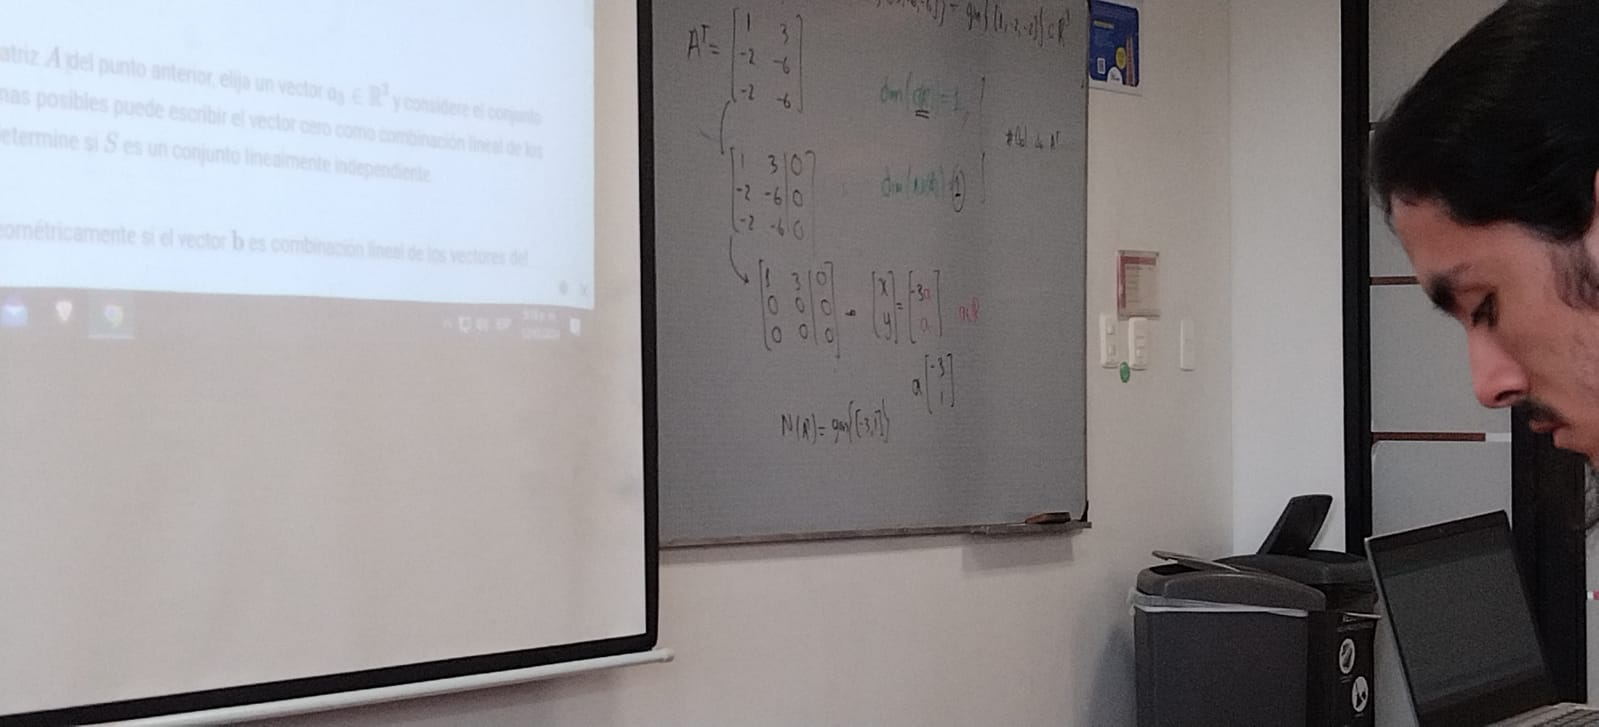 atriz A del punto anterior, elija un vector a₃ ∈ R³ y considere el conjunto
mas posibles puede escribir el vector cero como combinación lineal de los
etermine si S es un conjunto linealmente independiente.
eométricamente si el vector b es combinación lineal de los vectores del
ESP
gen{[1,-2,-2]} ⊂ R³
Aᵀ = [1 3
-2 -6
-2 -6]
dim( ) = 1
# Col de Aᵀ
[1 3 | 0
-2 -6 | 0
-2 -6 | 0]
dim( ) = 1
[1 3 | 0
0 0 | 0
0 0 | 0]
[x
y] = [-3a
a] a∈R
a [-3
1]
N(Aᵀ) = gen{[-3,1]}